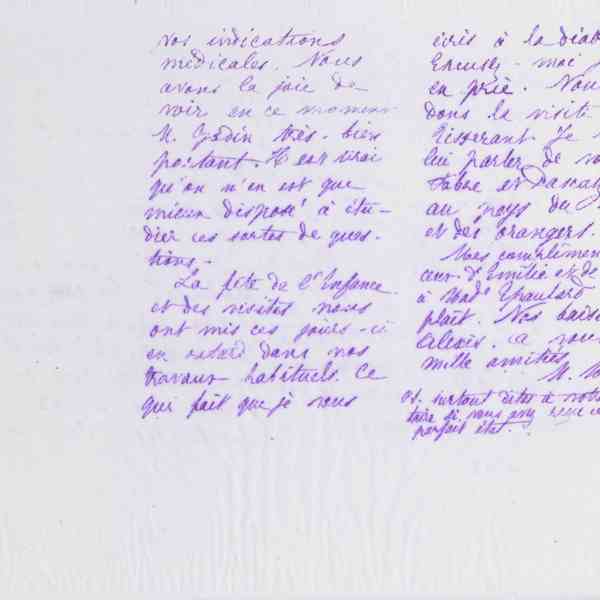 vos indications
médicales. Nous
avons la joie de
voir en ce moment
M. Godin très-bien
portant. Il est vrai
qu'on n'en est que
mieux disposé à étu-
dier ces sortes de ques-
tions.
La fête de l'Enfance
et des visites nous
ont mis ces jours-ci
en retard dans nos
travaux habituels. Ce
qui fait que je vous
écris à la diab
Excusez-moi j
en prie. Nou
dons la visite
Tisserant. Je
lui parler de vo
Fabre et Pascaly
au pays du
et des orangers.
Mes complimen
ceux d'Emilie et de
à Made
plait. Nos baise
Alexis. à vou
mille amitiés
M. M
PS. surtout dites à votre
si vous avez reçu
parfait état.